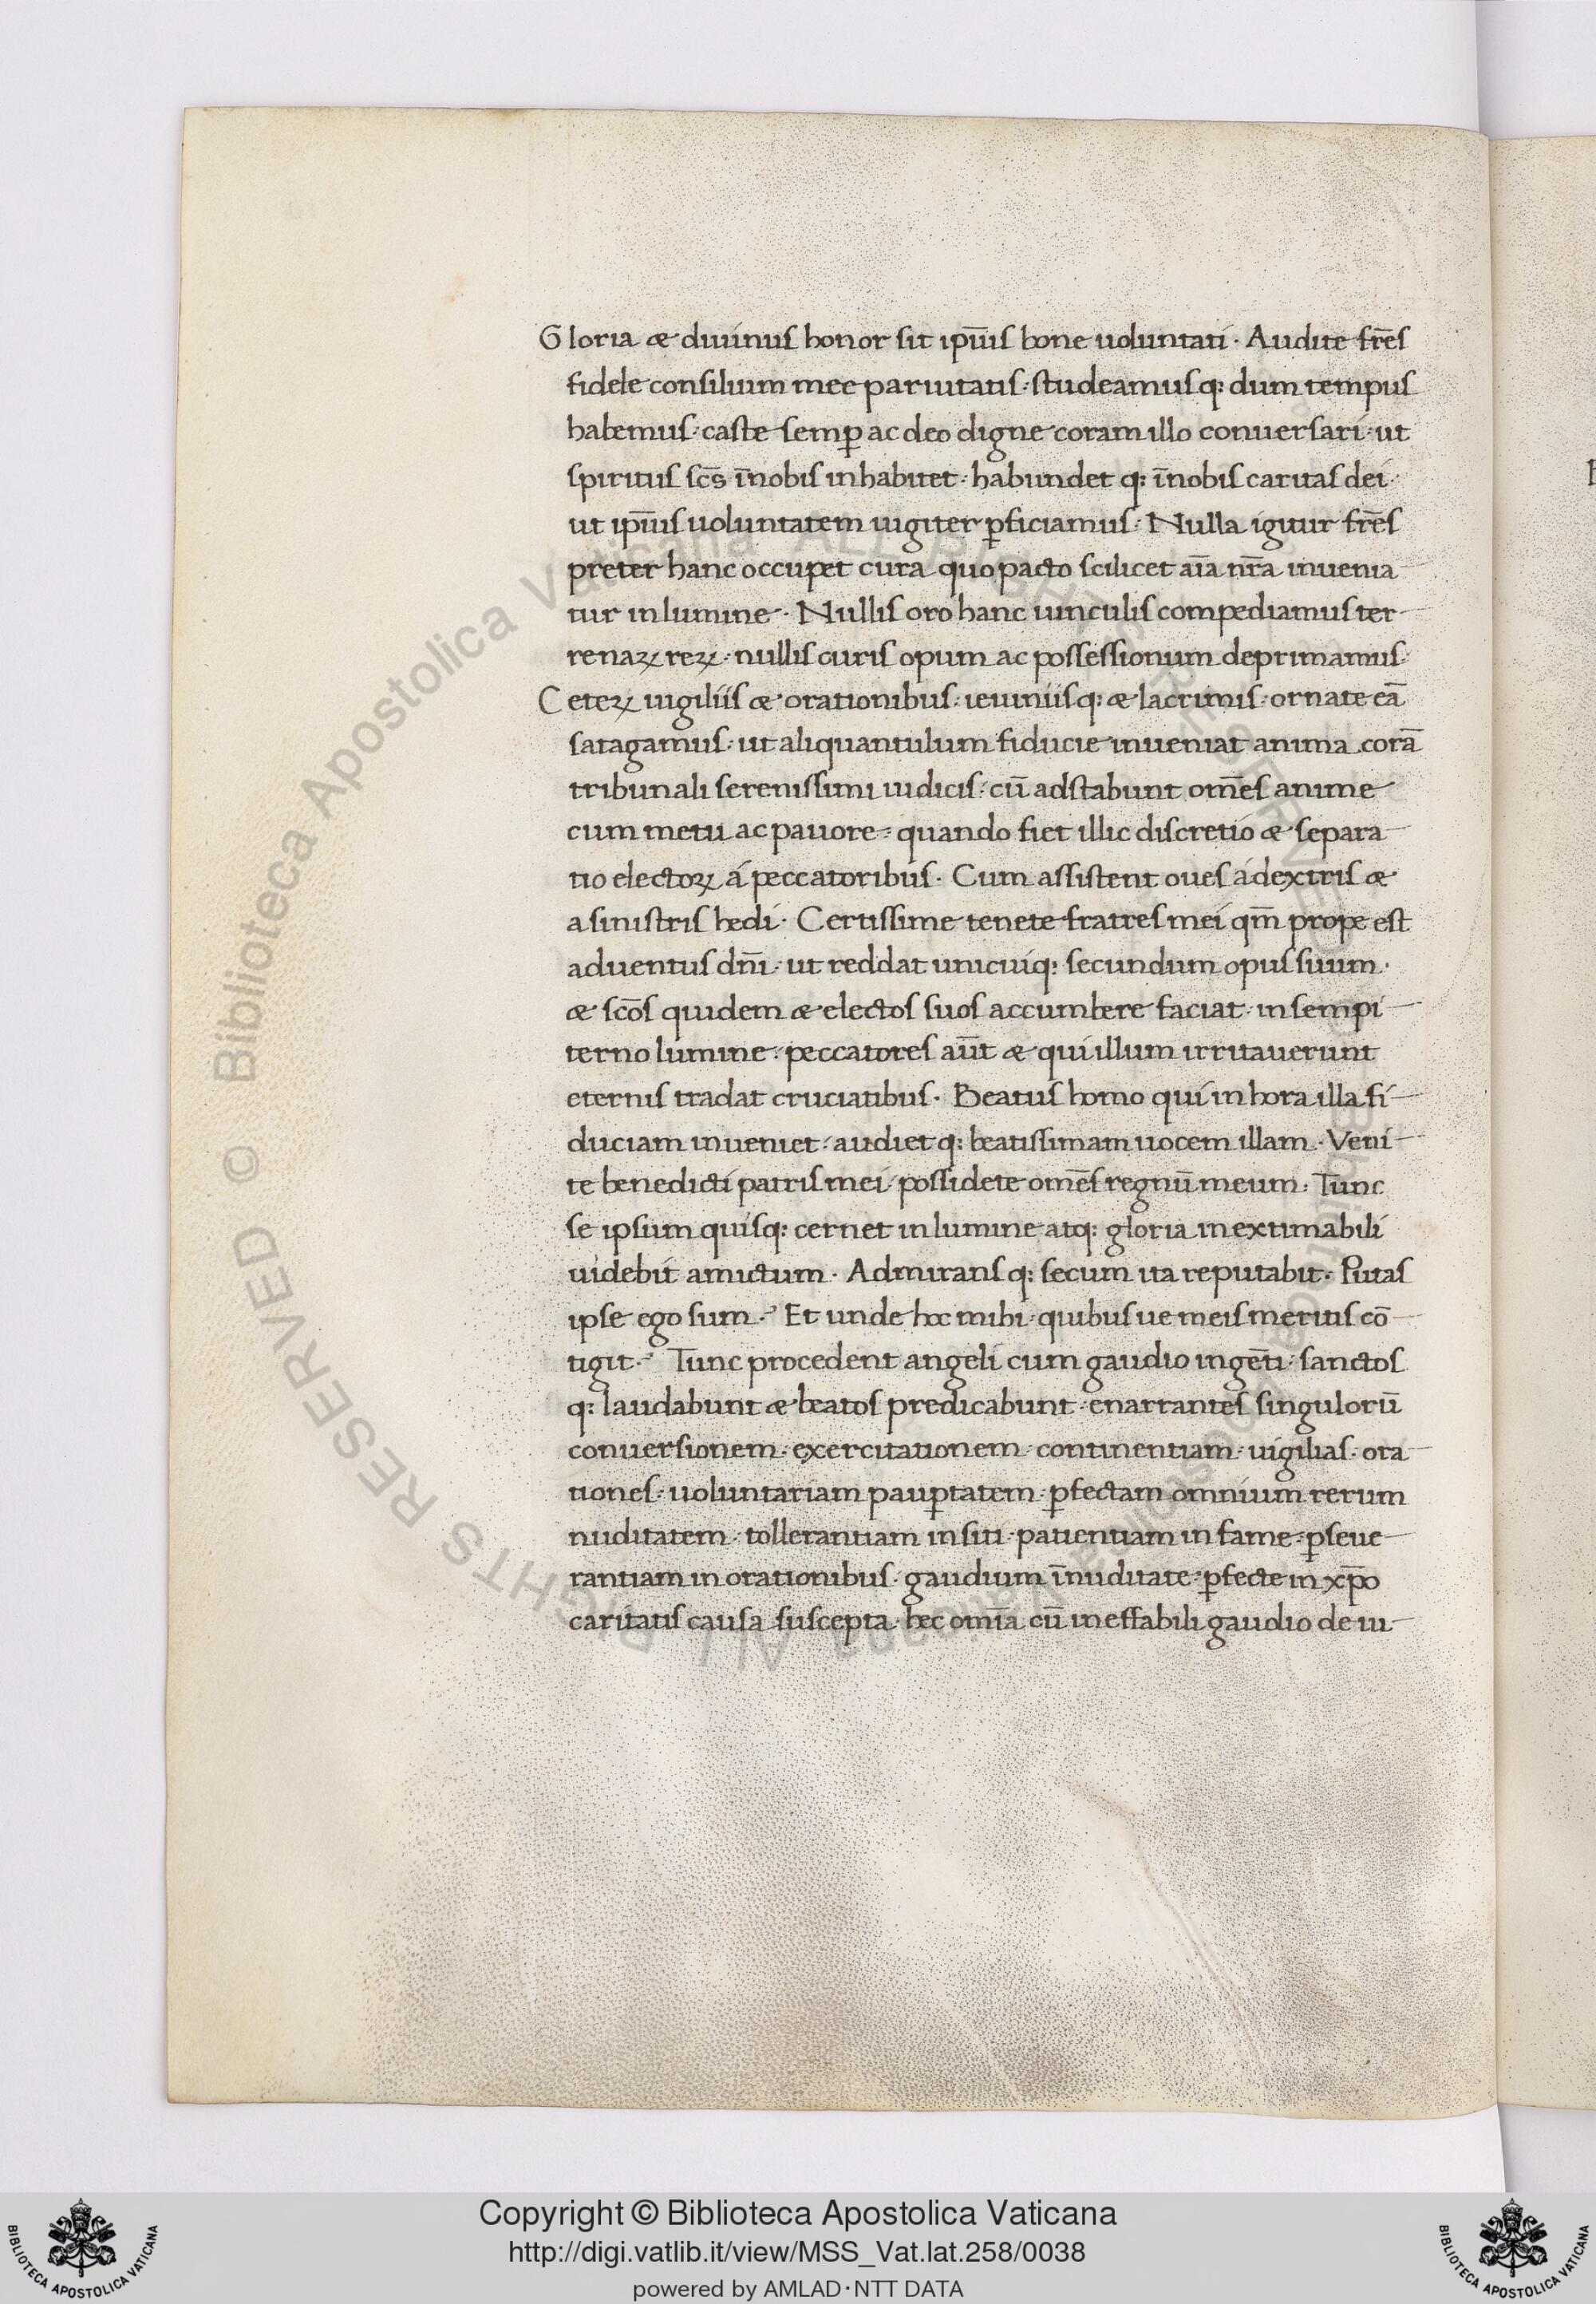 Gloria & diuinus honor sit ipīus bone uoluntati · Audite fr̄es
fidele consilium mee paruitatis : studeamusq; dum tempus
habemus : caste semꝑ ac deo digne coram illo conuersari : ut
spiritus sc̄s īnobis inhabitet : habundet q; īnobis caritas dei
ut ipīus uoluntatem iugiter ꝑficiamus : Nulla igitur fr̄es
preter hanc occupet cura quo pacto scilicet aīa nr̄a inuenia
tur in lumine · Nullis oro hanc uinculis compediamus ter
renaꝝ reꝝ : nullis curis opum ac possessionum deprimamus :
Ceteꝝ uigiliis & orationibus : ieiuniisq; & lacrimis : ornate eā
satagamus : ut aliquantulum fiducie inueniat anima corā
tribunali serenissimi iudicis : cū adstabunt om̄es anime
cum metu ac pauore : quando fiet illic discretio & separa
tio electoꝝ á peccatoribus · Cum assistent oues ádextris &
a sinistris hedi · Certissime tenete fratres mei qm̄ prope est
aduentus dn̄i : ut reddat unicuiq; secundum opus suum ·
& sc̄os quidem & electos suos accumbere faciat in sempi
terno lumine : peccatores aūt & qui illum irritauerunt
eternis tradat cruciatibus · Beatus homo qui in hora illa fi
duciam inueniet : audiet q; beatissimam uocem illam · Veni
te benedicti patris mei possidete om̄es regnū meum · Tunc
se ipsum quisq; cernet in lumine atq; gloria inextimabili
uidebit amictum · Admirans q; secum ita reputabit · Putas
ipse ego sum ·? Et unde hoc mihi quibus ue meis meritis cō
tigit ·? Tunc procedent angeli cum gaudio ingēti : sanctos
q; laudabunt & beatos predicabunt enarrantes singulorū
conuersionem : exercitationem : continentiam : uigilias : ora
tiones : uoluntariam pauꝑtatem : ꝑfectam omnium rerum
nuditatem : tollerantiam in siti : patientiam in fame : ꝑseue
rantiam in orationibus : gaudium īnuditate : ꝑfecte in xp̄o
caritatis causa suscepta : hec omīa cū ineffabili gaudio de iu
© Biblioteca Apostolica Vaticana ALL RIGHTS RESERVED
Copyright © Biblioteca Apostolica Vaticana
http://digi.vatlib.it/view/MSS_Vat.lat.258/0038
powered by AMLAD·NTT DATA
BIBLIOTECA APOSTOLICA VATICANA
BIBLIOTECA APOSTOLICA VATICANA